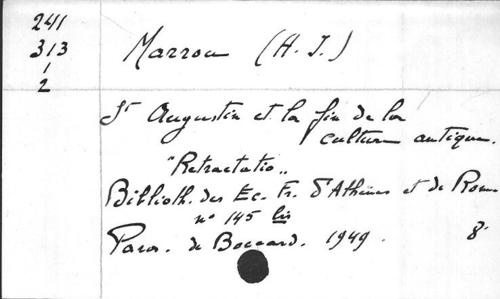 241
313
1
2
Marrou (H. I.)
St Augustin et la fin de la
culture antique.
"Retractatio"
Biblioth. des Ec. Fr. d'Athènes et de Rome
n° 145 bis
Paris. de Boccard. 1949. 8°